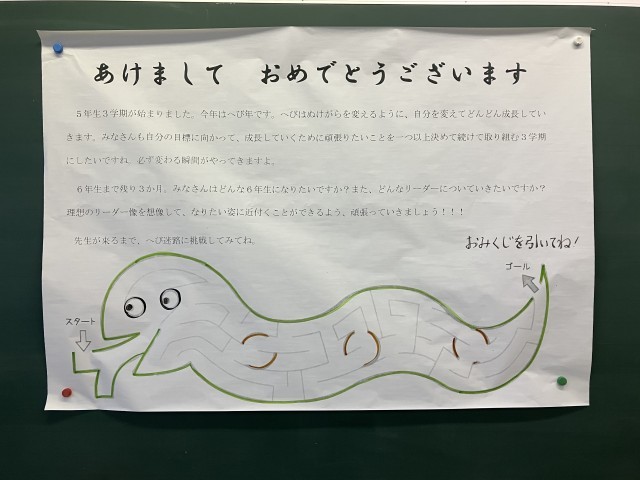 あけまして　おめでとうございます
５年生３学期が始まりました。今年はへび年です。へびはぬけがらを変えるように、自分を変えてどんどん成長してい
きます。みなさんも自分の目標に向かって、成長していくために頑張りたいことを一つ以上決めて続けて取り組む３学期
にしたいですね。必ず変わる瞬間がやってきますよ。
６年生まで残り３か月。みなさんはどんな６年生になりたいですか？また、どんなリーダーについていきたいですか？
理想のリーダー像を想像して、なりたい姿に近付くことができるよう、頑張っていきましょう！！！
先生が来るまで、へび迷路に挑戦してみてね。
おみくじを引いてね！
ゴール
スタート